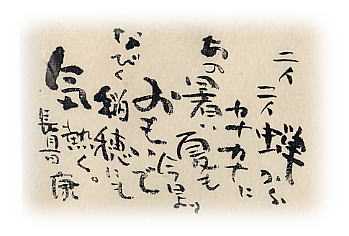 ニイニイ蝉から
カナカナに
あの暑い夏も
今日より
おもいで
なびく稲穂にも
気熱く。
康